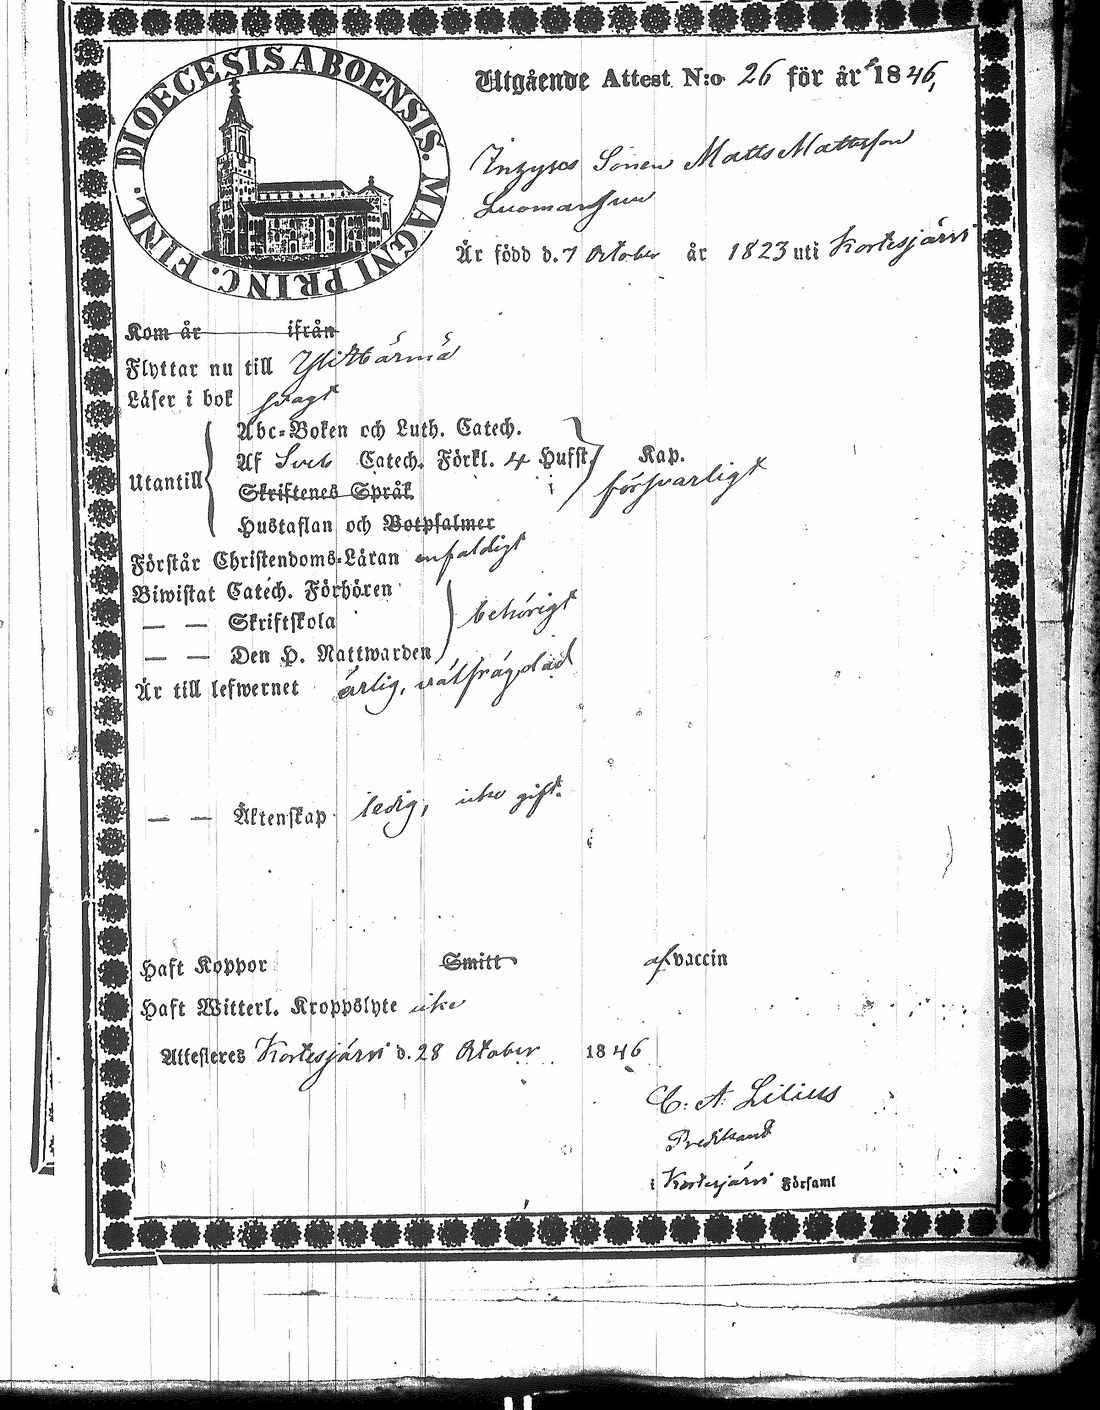 DIOECESIS ABOENSIS. MAGNI PRINC. FINL.
Utgående Attest N:o 26 för år 1846,
Sonen Matts Mattsson
är född d. 7 October år 1823 uti Kortesjärvi
Kom år ifrån
Flyttar nu till Ylihärmä
Läser i bok svagt
Utantill
Abc-Boken och Luth. Catech.
Af Sveb Catech. Förkl. 4 Hufst. Kap.
försvarligt
Skriftenes Språk
Hustaflan och Botpsalmer
Förstår Christendoms-Läran enfaldigt
Biwistat Catech. Förhören
— — Skriftskola behörigt
— — Den H. Nattwarden
Är till lefwernet ärlig, välfrägdad
— — Äktenskap ledig, icke gift.
Haft Koppor Smitt af vaccin
Haft Witterl. Kroppslyte icke
Attesteres Kortesjärvi d. 28 October 1846
C. A. Lilius
Predikant
i Kortesjärvi Församl